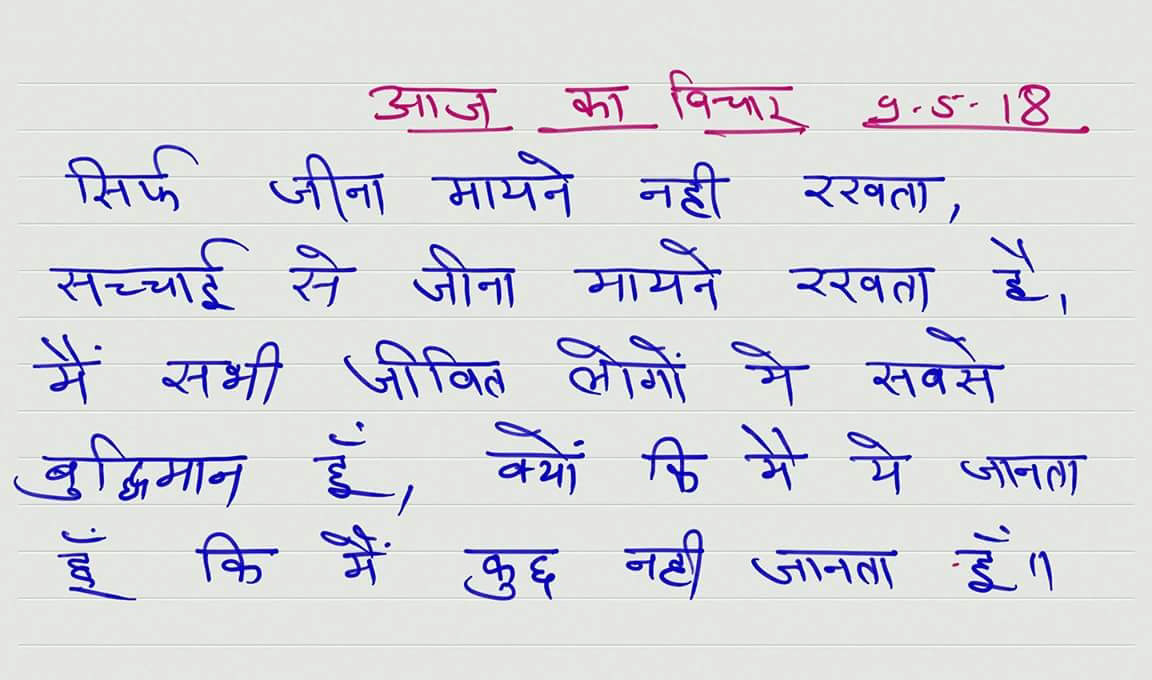 आज का विचार 9-5-18
सिर्फ जीना मायने नही रखता,
सच्चाई से जीना मायने रखता है,
मैं सभी जीवित लोगों मे सबसे
बुद्धिमान हूँ, क्यों कि मै ये जानता
हूँ कि मैं कुछ नही जानता हूँ॥